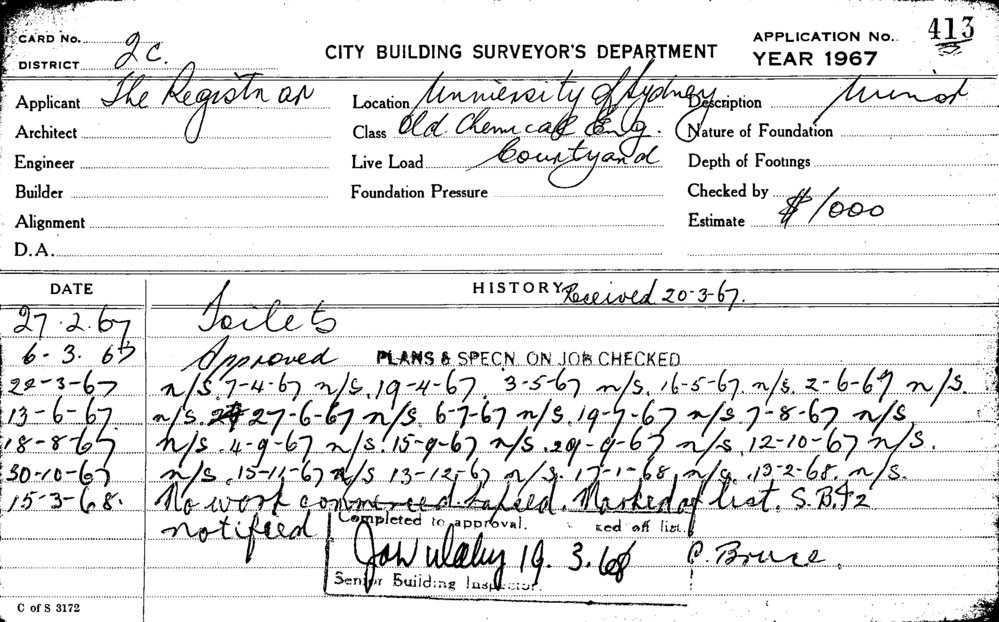 CARD No. 2C. CITY BUILDING SURVEYOR'S DEPARTMENT APPLICATION No. 413
DISTRICT YEAR 1967
Applicant The Registrar Location University of Sydney Description Minor
Architect Class Old Chemical Eng. Nature of Foundation
Engineer Live Load Courtyard Depth of Footings
Builder Foundation Pressure Checked by
Alignment Estimate $1000
D.A.
DATE HISTORY Received 20-3-67.
27.2.67 Toilets
6-3.67 Approved PLANS & SPECN. ON JOB CHECKED
22-3-67 n/s. 7-4-67 n/s. 19-4-67. 3-5-67 n/s. 16-5-67. n/s. 2-6-67 n/s.
13-6-67. n/s. 27-6-67 n/s. 6-7-67 n/s. 19-7-67 n/s. 7-8-67 n/s.
18-8-67 n/s. 4-9-67 n/s. 15-9-67 n/s. 29-9-67 n/s. 12-10-67 n/s.
30-10-67 n/s. 15-11-67 n/s 13-12-67 n/s. 17-1-68, n/s. 13-2-68. n/s.
15-3-68. No work commenced. Lapsed. Marked off list. S.B.I2
notified Completed to approval. ked off list.
19.3.68 P. Bruce.
Senior Building Inspector.
C of S 3172